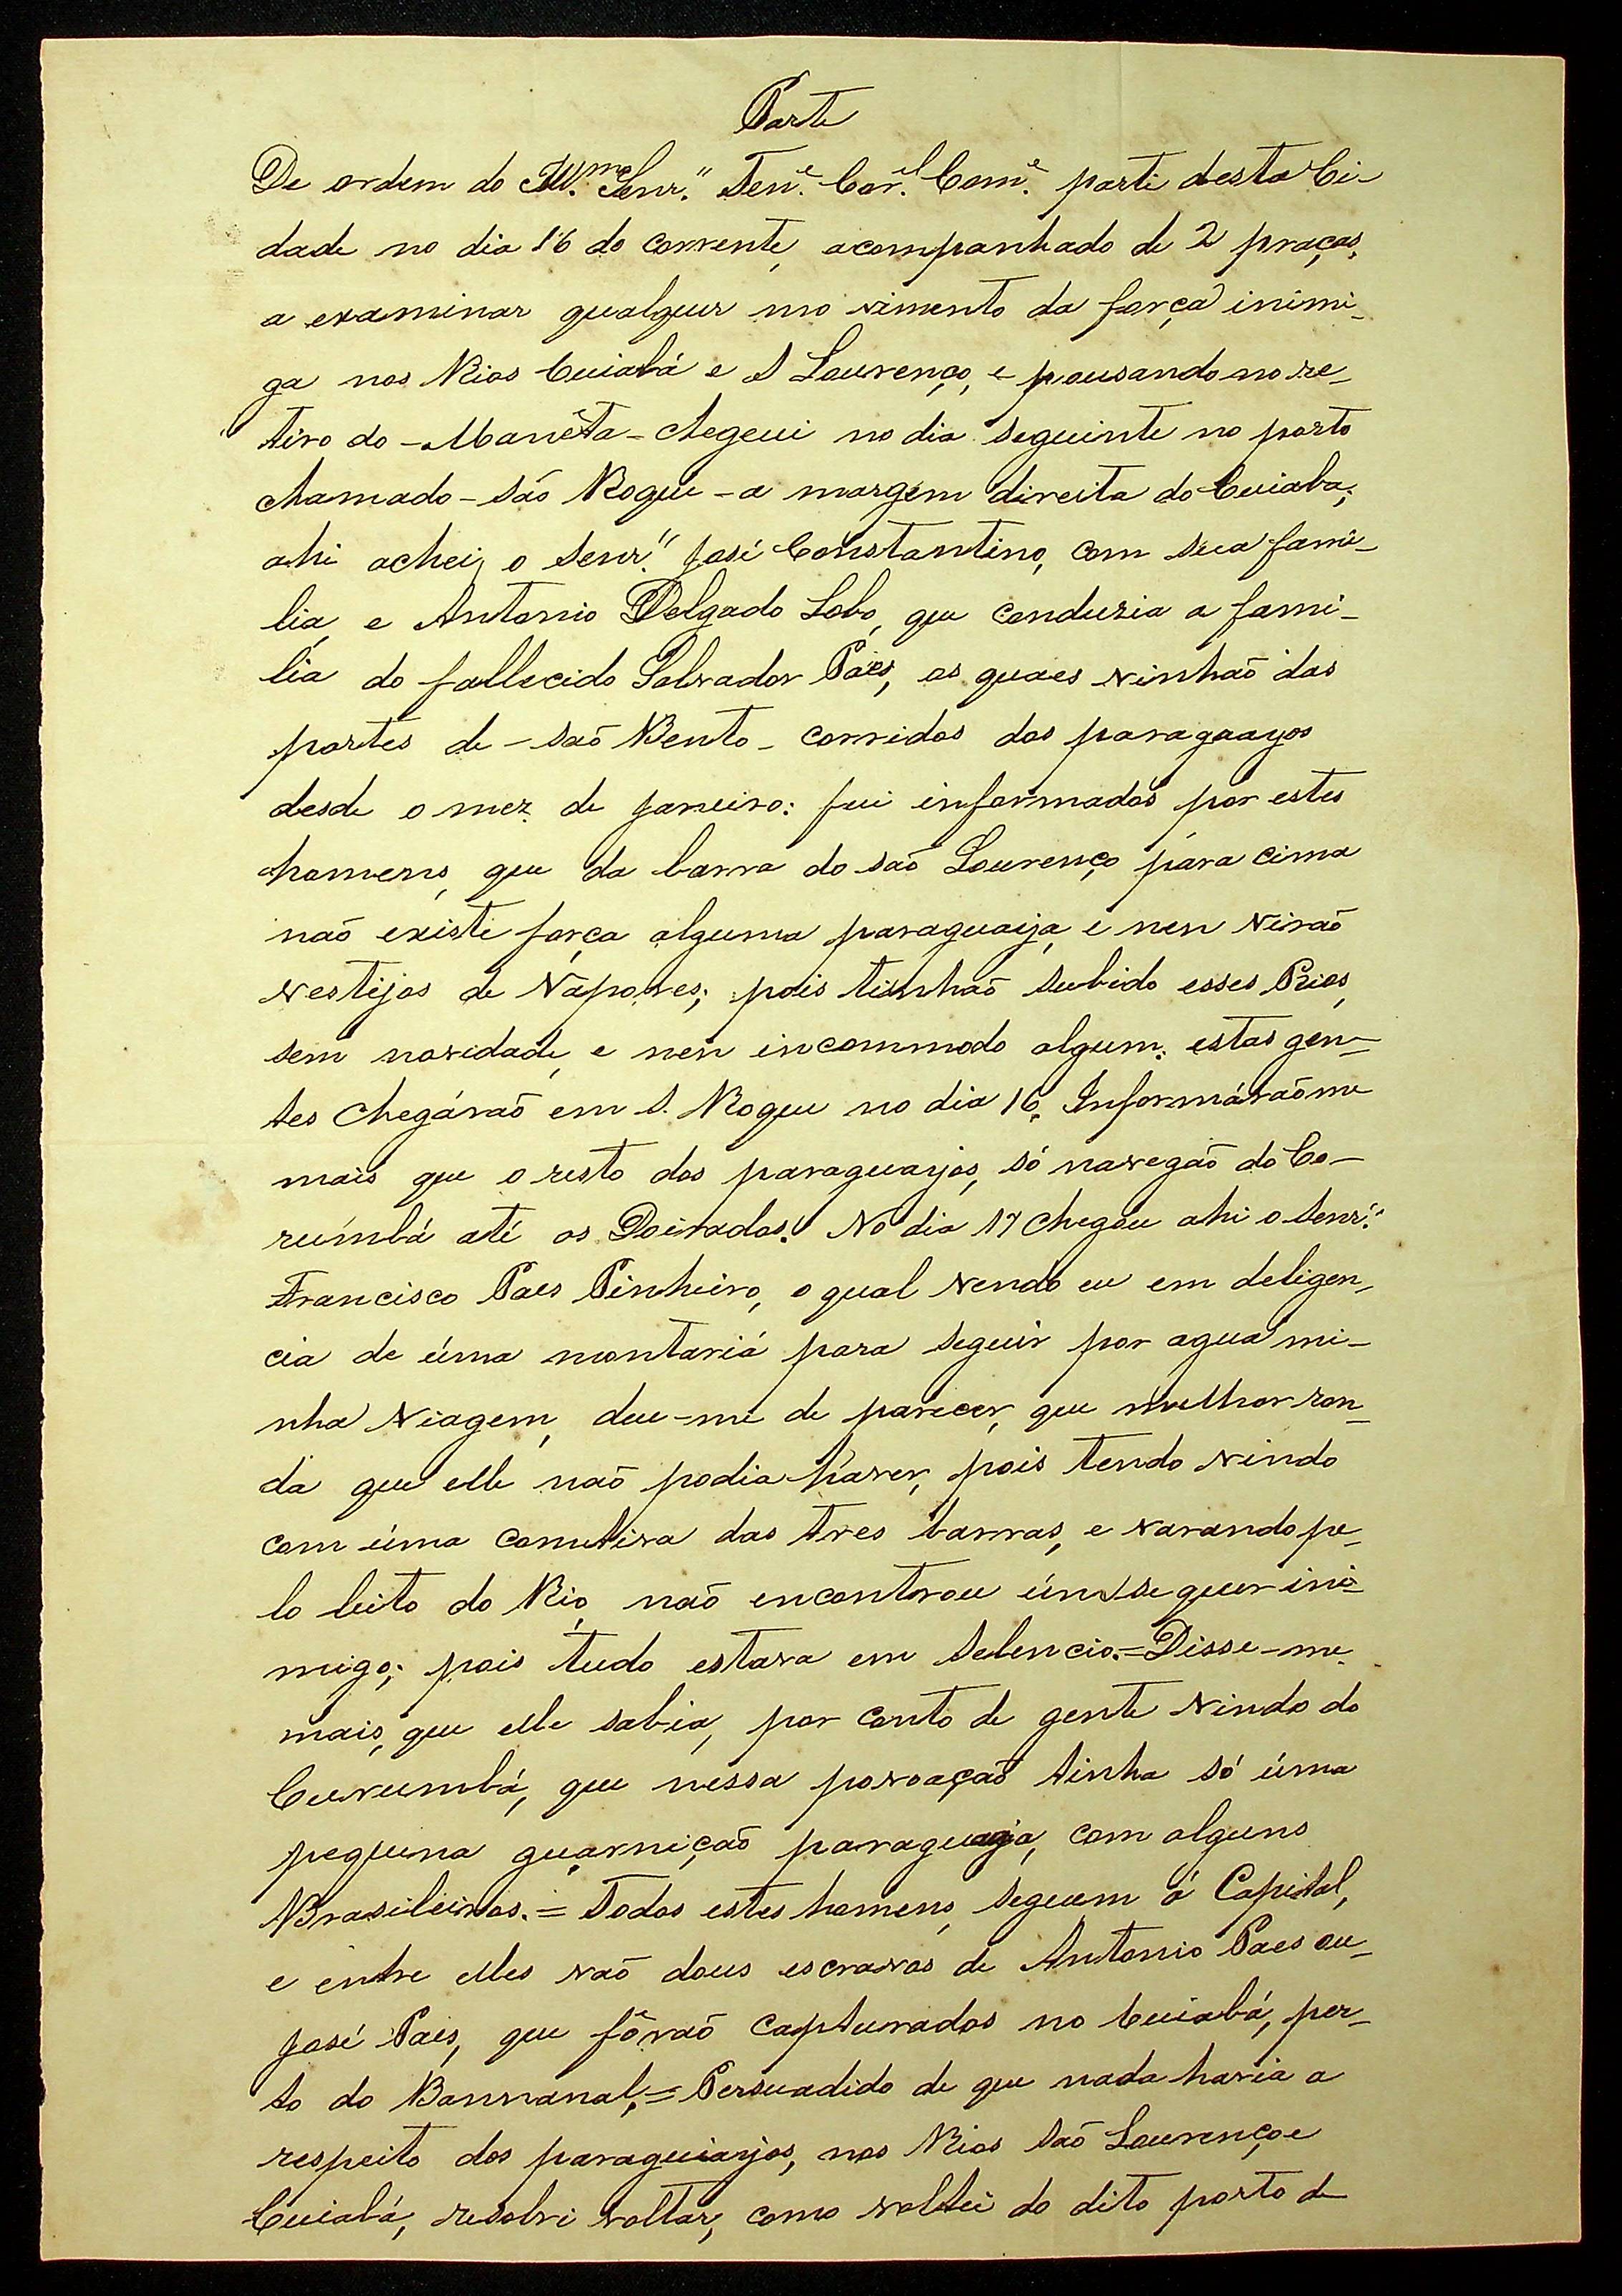 Parte
De ordem do Ill.mo Senr." Ten.e Cor.el Com.e parti desta Ci-
dade no dia 16 do corrente, acompanhado de 2 praças,
a examinar qualquer movimento da força inimi-
ga nos Rios Cuiabá e S Lourenço, e pousando no re-
tiro do - Manéta - cheguei no dia seguinte no porto
chamado - são Roque - a margem direita do Cuiaba;
ahi achei o Senr." José Constantino, com sua fami-
lia, e Antonio Delgado Lobo, que conduzia a fami-
lia do fallecido Salvador Paes, os quaes vinhaõ das
partes de - saõ Bento - corridos dos paraguayos
desde o mez de janeiro: fui informados por estes
homens, que da barra do saõ Lourenço para cima
naõ existe força alguma paraguaya, e nen viraõ
vestijos de vapores; pois tinhaõ subido esses Rios,
sem novidade, e nen incommodo algum: estas gen-
tes chegáraõ em S. Roque no dia 16. Informáraõ me
mais que o resto dos paraguayos, só navegaõ do Co-
rumbá até os Doirados. No dia 17 chegou ahi o Senr."
Francisco Paes Pinheiro, o qual vendo eu em deligen-
cia de úma montariá para seguir por agua mi-
nha viagem, deu-me de parecer, que melhor ron-
da que elle naõ podia haver, pois tendo vindo
com úma comitiva das tres barras, e varando pe-
lo leito do Rio, naõ encontrou úm se quer ini-
migo; pois tudo estava em selencio. = Disse-me
mais, que elle sabia, por conto de gente vindo do
Curumbá, que nessa povoaçaõ tinha só úma
pequena guarniçaõ paraguaya, com alguns
Brasileiros. = Todos estes homens, seguem á Capital,
e entre elles vaõ dous escravos de Antonio Paes ou
José Paes, que fôraõ capturados no Cuiabá, per-
to do Bannanal, = Persuadido de que nada havia a
respeito dos paraguiayos, nos Rios Saõ Lourenço e
Cuiabá, resolvi voltar, como voltei do dito porto de